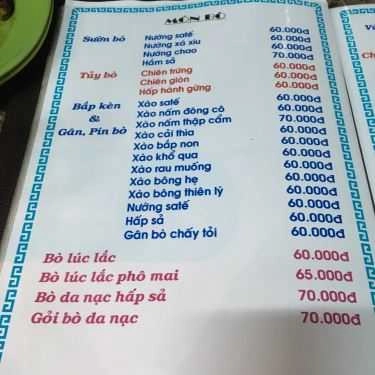 MÓN BÒ
Sườn bò
Nướng satế 60.000đ
Nướng xá xíu 60.000đ
Nướng chao 70.000đ
Hầm sả 60.000đ
Tủy bò
Chiên trứng 60.000đ
Chiên giòn 60.000đ
Hấp hành gừng 60.000đ
Bắp kèn & Gân, Pín bò
Xào satế 60.000đ
Xào nấm đông cô 60.000đ
Xào nấm thập cẩm 70.000đ
Xào cải thìa 60.000đ
Xào bắp non 60.000đ
Xào khổ qua 60.000đ
Xào rau muống 60.000đ
Xào bông hẹ 60.000đ
Xào bông thiên lý 60.000đ
Nướng satế 60.000đ
Hấp sả 60.000đ
Gân bò cháy tỏi 60.000đ
Bò lúc lắc 60.000đ
Bò lúc lắc phô mai 65.000đ
Bò da nạc hấp sả 70.000đ
Gỏi bò da nạc 70.000đ